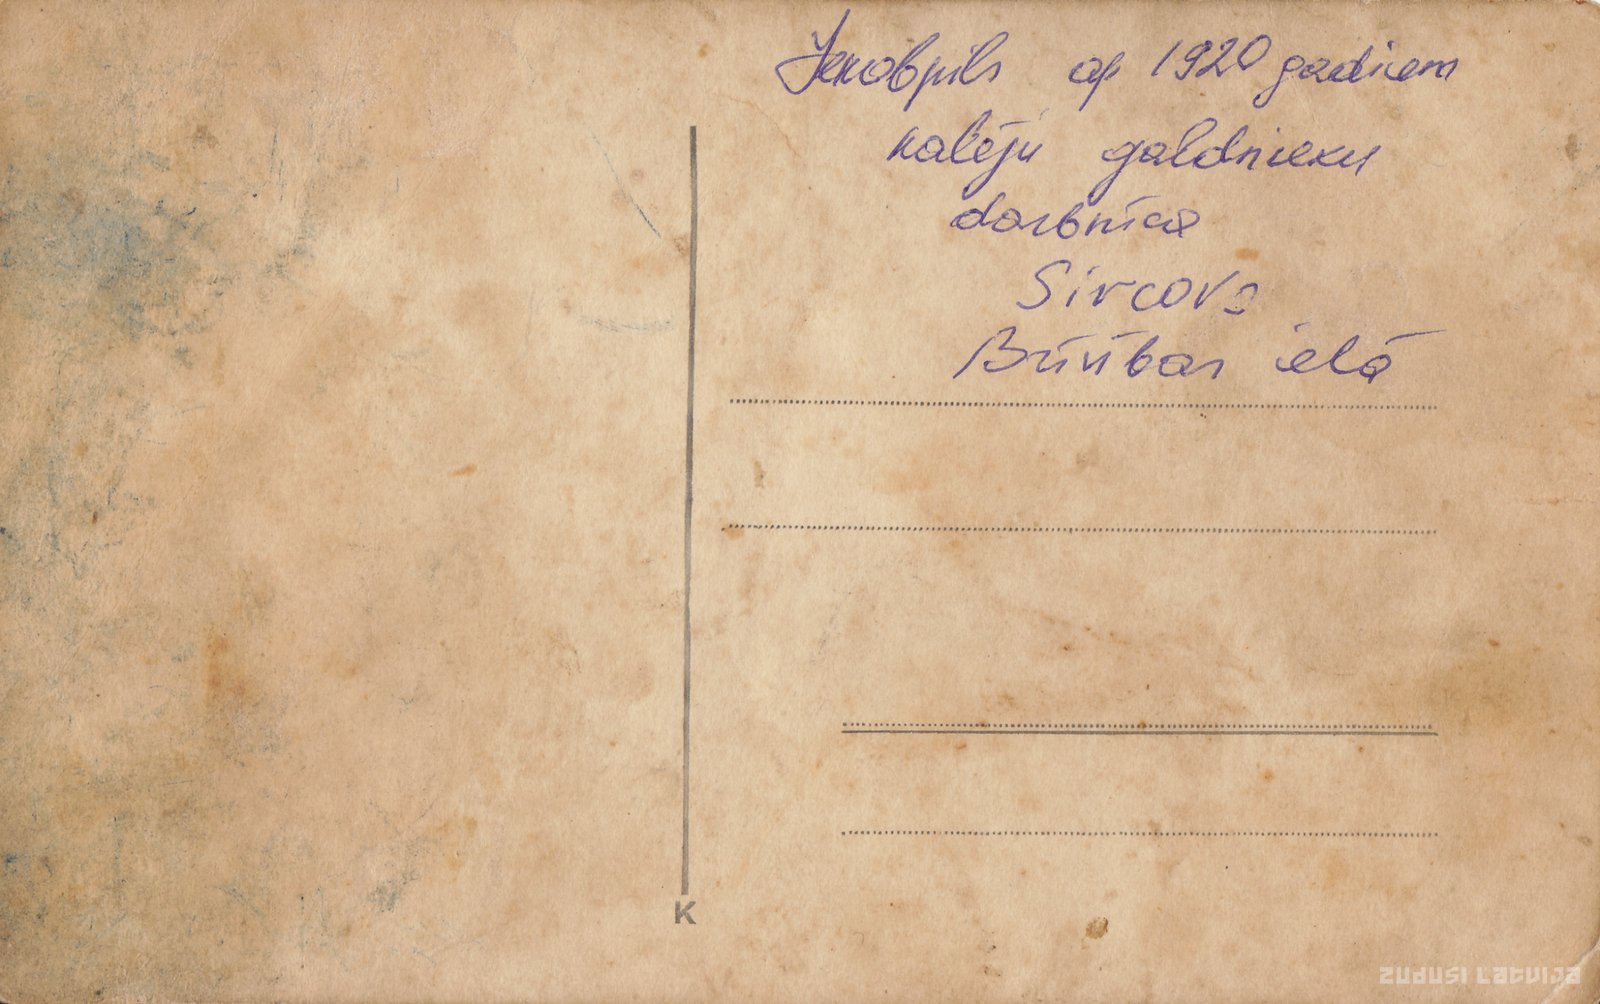 Jēkabpils ap 1920 gadiem
kalēju galdnieku
darbnīca
Sircova
Brīvības ielā
K
ZUDUSI LATVIJA